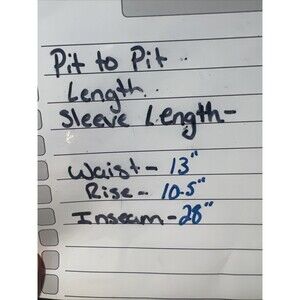 Pit to Pit
Length
Sleeve Length-
Waist- 13"
Rise- 10.5"
Inseam-28"